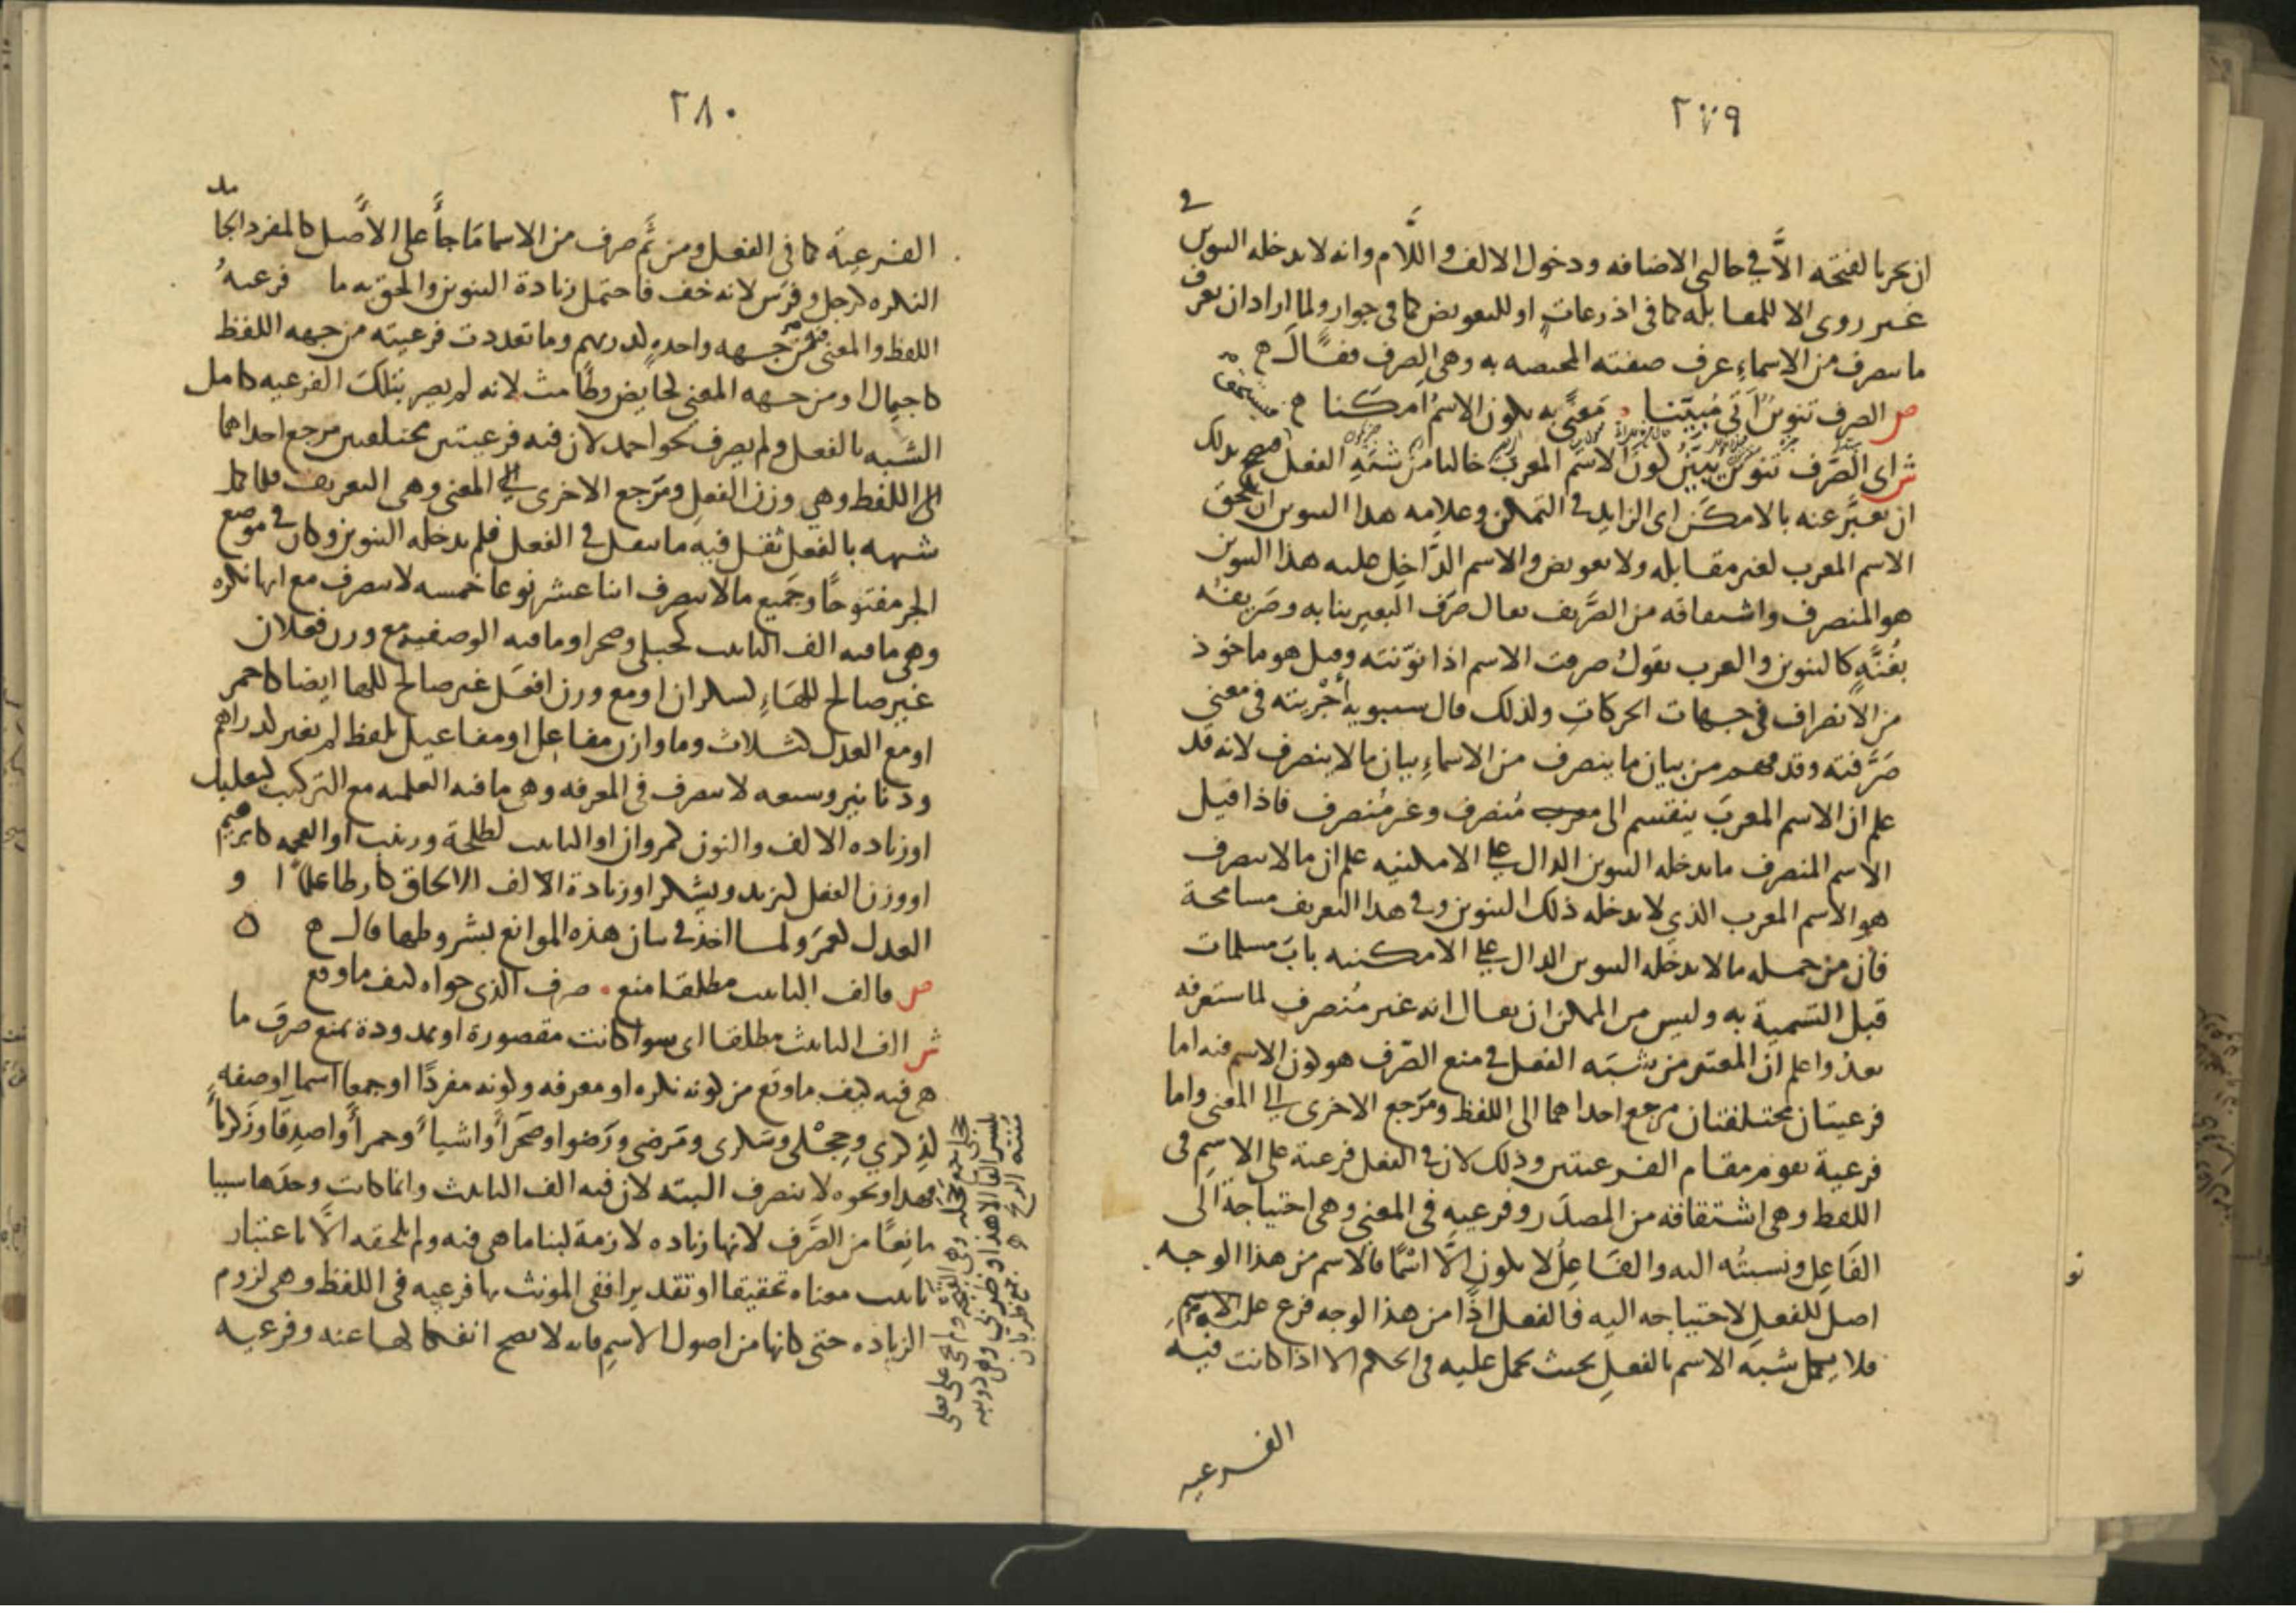 ٢٧٩
ان يجر بالفتحه الَّا في حالتي الاضافه ودخول الالف واللَّام وانه لا يدخله التنوين في
غير روى الا للمقابله كما في اذرعاتٍ او للتعويض كما في جوار ولما اراد ان يعرف
ما ينصرف من الاسماءِ عرف صفته المختصه به وهي الصرف فقال ح
ص الصرف تنوينٌ اَتى مُبيّنا . مَعنًى به يكون الاسمُ امكنا ح
ش اى الصَّرف تنوين يبيّن كونَ الاسم المعرب خالصا من شَبَهِ الفعل فصح بذلك
ان يعبَّر عنه بالامكَن اى الزايد في التمكن وعلامه هذا التنوين ان يلحق
الاسم المعرب لغير مقابله ولا تعويض والاسم الدَّاخِل عليه هذا التنوين
هو المنصرف واشتقاقه من الصَّريف يقال صَرَف البعير بنابه وصَريفُه
بغُنَّةٍ كالتنوين والعرب يقولُ صرفت الاسم اذا نوّنته وقيل هو ماخوذ
من الانصراف في جهات الحركاتِ ولذلك قال سيبويه أجْريته في معنى
صَرَّفته وقد فهم من بيان ما ينصرف من الاسماءِ بيان ما لا ينصرف لانه قد
علم ان الاسم المعربَ ينقسم الى مُنصرف وغير مُنصرف فاذا قيل
الاسم المنصرف ما يدخله التنوين الدال على الامكنيه علم ان ما لا ينصرف
هو الاسم المعرب الذي لا يدخله ذلك التنوين وفي هذا التعريف مسامحة
فان من جمله ما لا يدخله التنوين الدال على الامكنيه بابَ مسلمات
قبل التَّسمية به وليس من الممكن ان يقال انه غير مُنصرف لما ستعرفه
بعدُ واعلم اَن المعتبر من شَبَه الفعل في منع الصَّرف هو كون الاسم فيه اما
فرعيتان مختلفتان مرجع احداهما الى اللفظ ومَرجع الاخرى الى المعنى واما
فرعية تقوم مقام الفرعيتين وذلك لان في الفعل فرعية على الاسم في
اللفظ وهي اشتقاقه من المصدَر وفرعيه في المعنى وهي احتياجة الى
الفَاعِل ونسبتُه اليه والفَاعِلُ لا يكون الَّا اسْمًا فالاسم من هذا الوجه
اصل للفعل لاحتياجه اليه فالفعل اذًا من هذا الوجه فرع على الاسم
فلا يكمل شبَه الاسم بالفعلِ بحيث يحمل عليه في الحكم الا اذا كانت فيه
الفرعيه
٢٨٠
الفرعية كما في الفعل ومن ثَم صرف من الاسما مَا جأَ على الأَصل كالمفرد الجامد
النكره كرجل وفرَس لانه خف فاحتمل زيادة التنوين والحق به ما فرعيهُ
اللفظ والمعنى فيه من جهه واحدهٍ كدريهم وما تعددت فرعيته من جهه اللفظ
كاجيمال او من جهه المعنى كحايض وطامث لانه لم يصر بتلك الفرعيه كامل
الشَّبه بالفعل ولم يصرف نحو احمد لان فيه فرعيتين مختلفتين مرجع احداهما
الى اللفظ وهي وزن الفعل ومَرجع الاخرى الى المعنى وهى التعريف فلما كمل
شبهه بالفعل ثقل فيه ما يثقل في الفعل فلم يدخله التنوين وكان في موضع
الجر مفتوحًا وجَميع ما لا ينصرف اثنا عشر نوعا خمسه لا ينصرف مع انها نكره
وهي ما فيه الف التانيث كحبلى وصحرا وما فيه الوصفيه مع وزن فعلان
غير صالح للهَاءِ كسكران او مع وزن افعَل غير صالح للها ايضا كاحمر
او مع العدل كثلاث وما وازن مفاعل او مفاعيل بلفظ لم يغير كدراهم
ودنانير وسبعه لا ينصرف في المعرفه وهي ما فيه العلميه مع التركيب كبعلبك
او زياده الالف والنون كمروان او التانيث كطلحة وزينب او العجمه كابرهيم
او وزن الفعل كيزيد ويشكر او زيادة الالف الالحاق كارطا علمًا و
العدل كعمَر ولما اخذ في بيان هذه الموانع بشروطها قال ح ه
ص فالف التانيث مطلقا منع . صرف الذى حواه كيف ما وقع
ش الف التانيث مطلقا اى سوا كانت مقصورة او ممدودة تمنع صرف ما
هي فيه كيف ما وقع من كونه نكره او معرفه وكونه مفردًا او جمعا اسما او صفه
كذِكري وحِجْلى وسَكرى ومَرضى ورَضوا وصَحرأ واشياءُ وحمرأَ واصدِقَا وزكريَاءُ
فهذا ونحوه لا ينصرف البته لان فيه الف التانيث وانما كانت وحدَها سببا
مانِعًا من الصَّرف لانها زياده لازمة لبنا ما هي فيه ولم تلحقه الَّا باعتبار
تانيث معناه تحقيقا او تقديرا ففي المونث بها فرعيه في اللفظ وهي لزوم
الزياده حتى كانها من اصول الاسمِ فانه لا يصح انفكاكها عنه وفرعيه